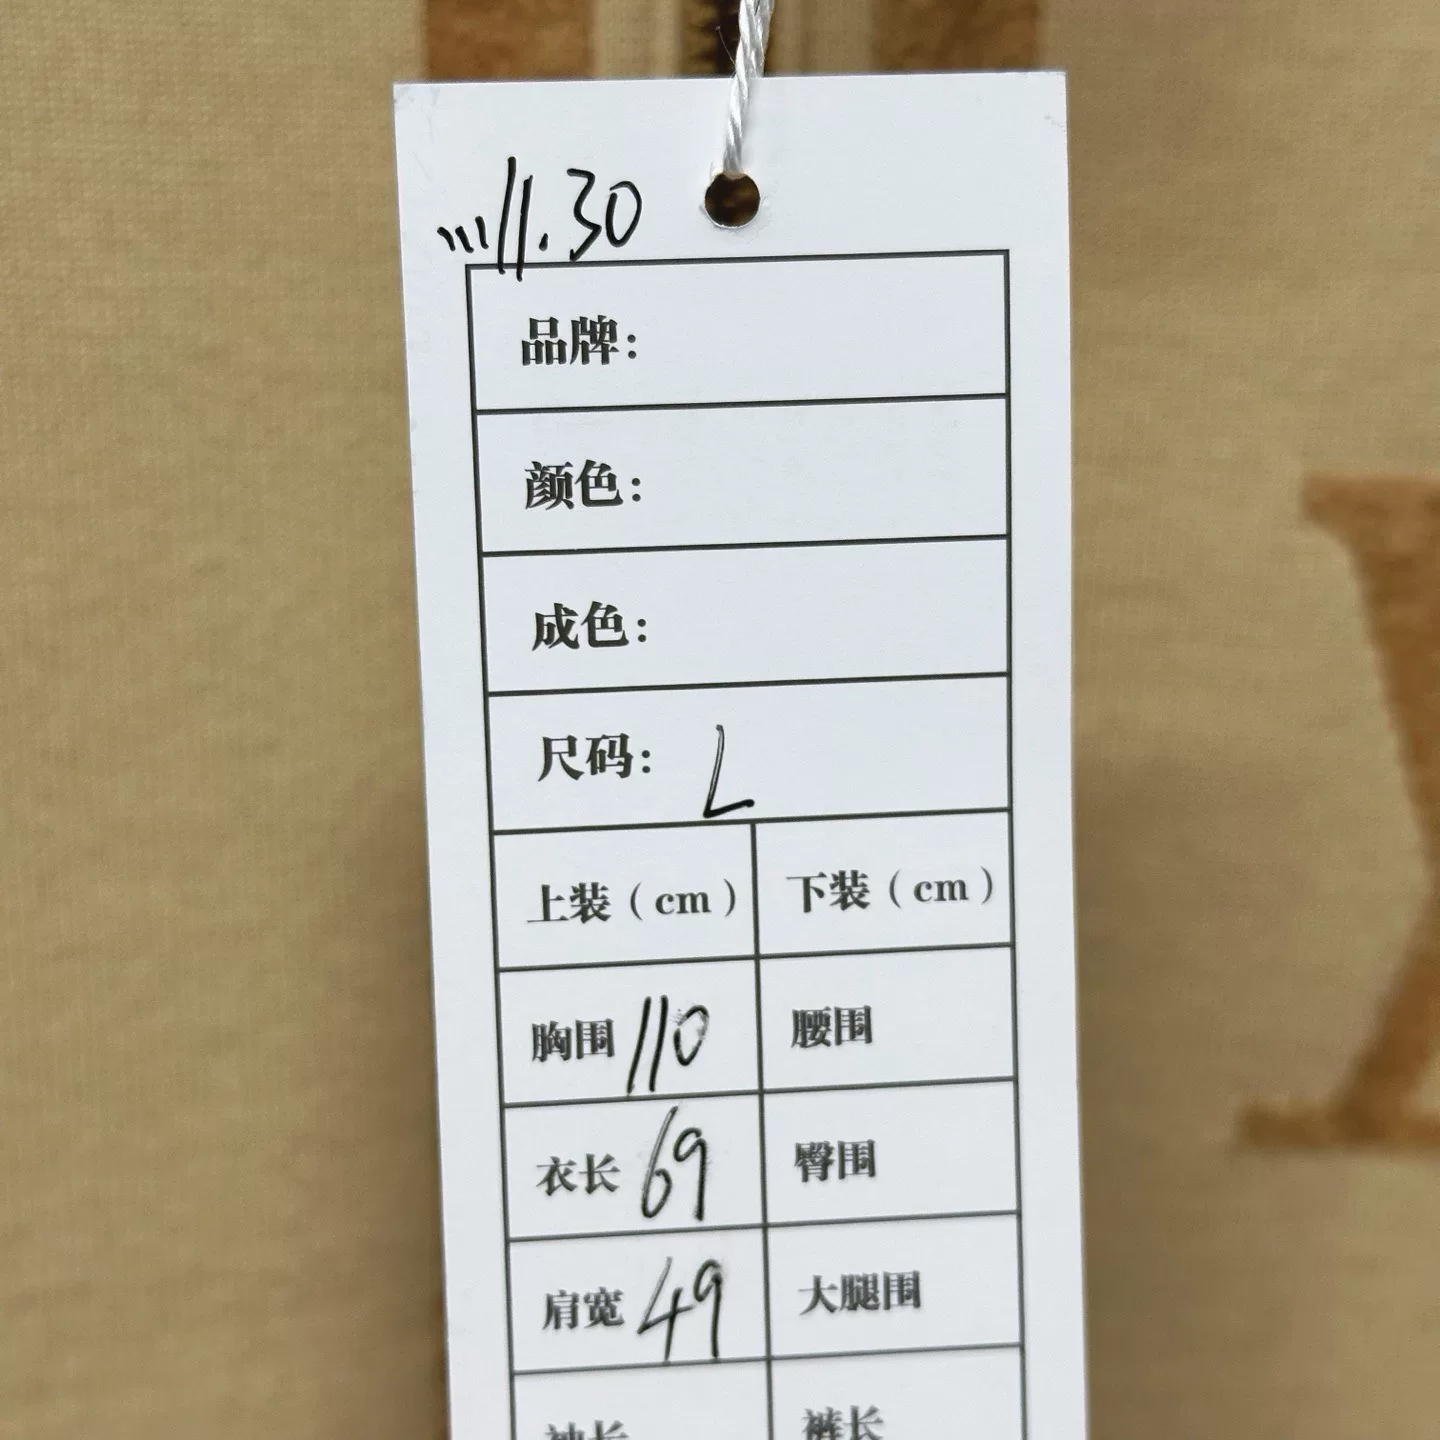 11.30
品牌：
颜色：
成色：
尺码： L
上装（cm） 下装（cm）
胸围 110 腰围
衣长 69 臀围
肩宽 49 大腿围
袖长 裤长